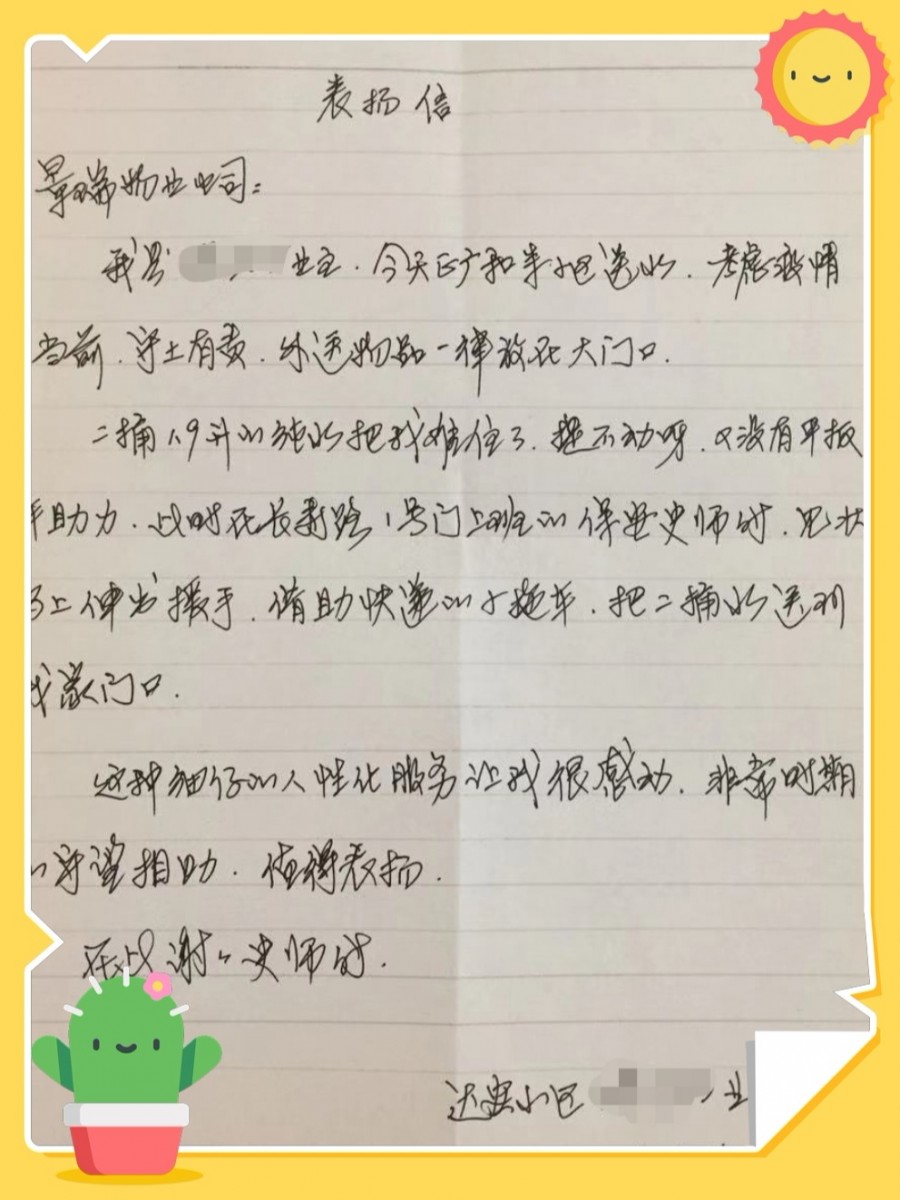 表扬信
景瑞物业公司：
我是 业主.今天正广和来小区送水.考虑疫情
当前.守土有责.外送物品一律放在大门口.
二桶19升的纯水把我难住了.提不动呀.又没有平板
车助力.此时在长新路1号门上班的保安史师时.见状
马上伸出援手.借助快递的小拖车.把二桶水送到
我家门口.
这种细仔的人性化服务让我很感动.非常时期
的守望相助.值得表扬.
在此谢谢史师时.
达安小区 业